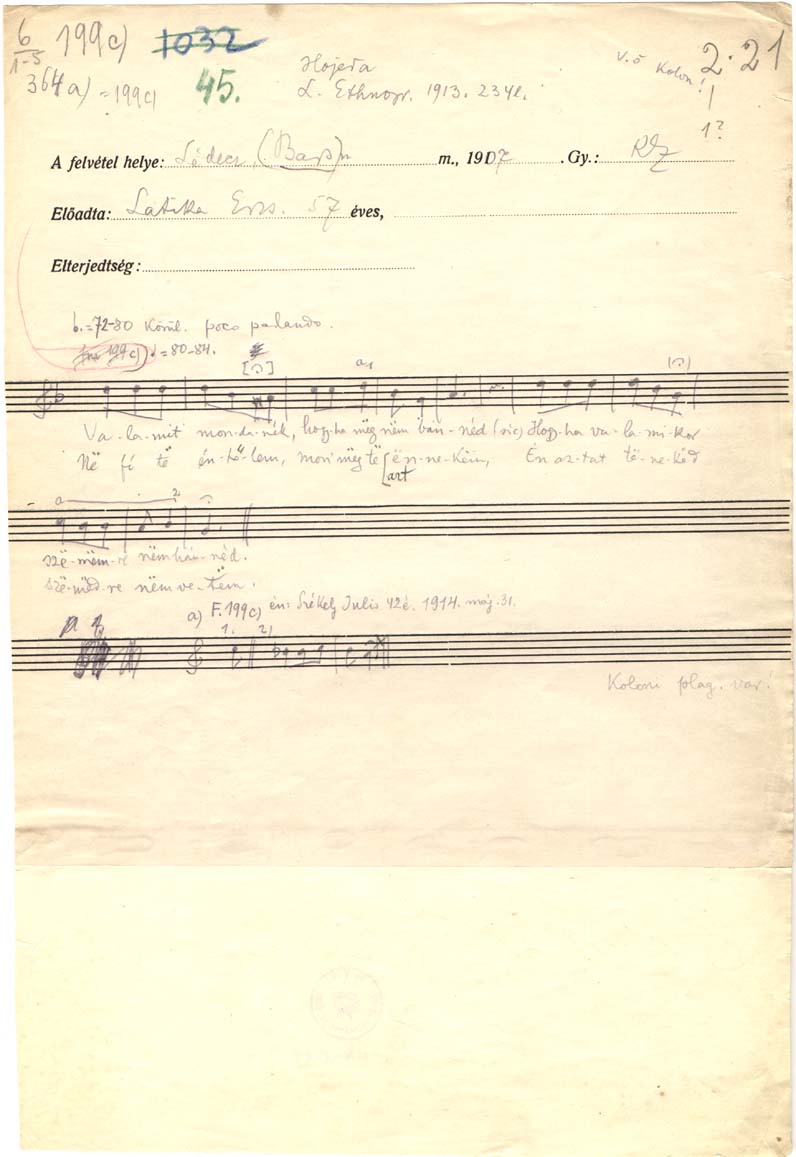 6/1-5 199c) 1032 2.21
Hojeďa V.ö Kolon!
364a) = 199c) 45. L. Ethnogr. 1913. 234 l. 1
1?
A felvétel helye: Lédecz (Bars) m., 1907 . Gy.:
Előadta: Latika Erzs. 57 éves,
Elterjedtség:
72-80 körül. poco parlando.
199c) = 80-84.
Va-la-mit mon-da-nék, hogy-ha mëg nëm bán-néd (sic) Hogy-ha va-la-mi-kor
Në fí të én-tű-lem, mon' mëg të ën-ne-këm, Én az-tat të-ne-këd
azt
szë-mëm-re nëm hán-néd.
szë-mëd-re nëm ve-tëm.
a) F. 199c) én: Székely Julis 42é. 1914. máj. 31.
1. 2)
Koloni plag. var!